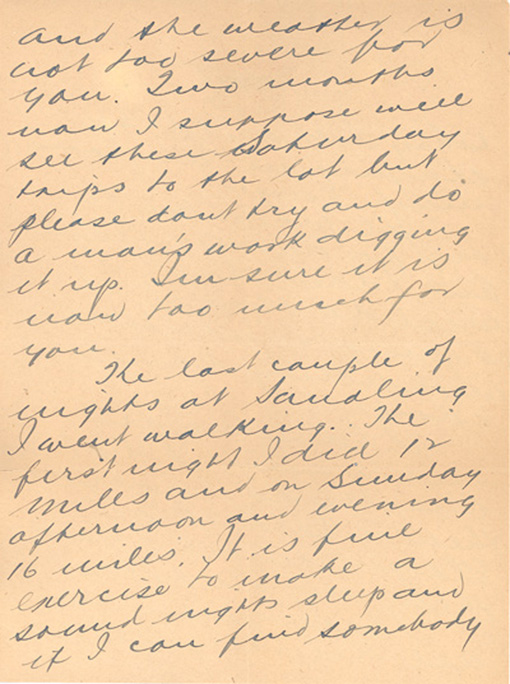 and the weather is
not too severe for
you. Two months
now I suppose will
see these Saturday
trips to the lot but
please dont try and do
a man's work digging
it up. Im sure it is
now too much for
you.
The last couple of
nights at Sandling
I went walking. The
first night I did 12
miles and on Sunday
afternoon and evening
16 miles. It is fine
exercise to make a
sound nights sleep and
if I can find somebody